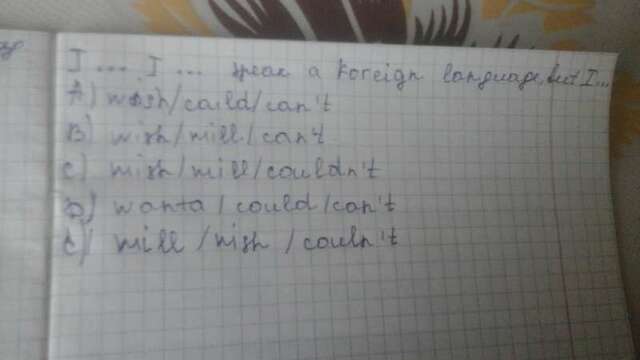 I .... I ... speak a foreign language, but I...
A) wish/could/can't
B) wish/will/can't
C) wish/will/couldn't
D) wanta/could/can't
E) will/wish/couln't